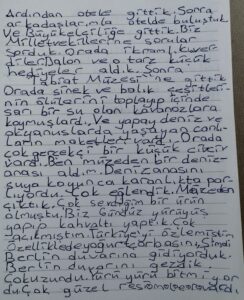 Ardından otele gittik. Sonra
arkadaşlarımla otelde buluştuk
ve Büyükelçiliğe gittik. Biz
Milletvekillerine sorular
sorduk. Orada ikramlıkıver
diler. Balon ve o tarz küçük
hediyeler aldık. Sonra
Tabiat Müzesine gittik
Orada sinek ve balık çeşitleri-
nin ölülerini toplayıp içinde
sarı bir su olan kavanozlara
koymuşlardı. Ve yapay deniz ve
okyanuslarda yaşayan canlı-
ların maketleri vardı. Orada
çok gerçekçi bir küçük civciv
vardı. Ben müzeden bir deniz-
anası aldım. Denizanasını
suya koyunca karanlıkta par-
lıyordu. Çok eğlendik. Müzeden
çıktık. Çok sevdiğim bir ürün
olmuştu. Biz Gündüz yürüyüş
yapıp kahvaltı yaptık. Çok
acıkmıştım. Türkiye'yi özlemiştim
Özellikle de yoğurt çorbasını. Şimdi
Berlin duvarına gidiyorduk.
Berlin duvarını gezdik
Çok uzundu. Yürü yürü bitmiyor
du. Çok güzel resimler vardı.